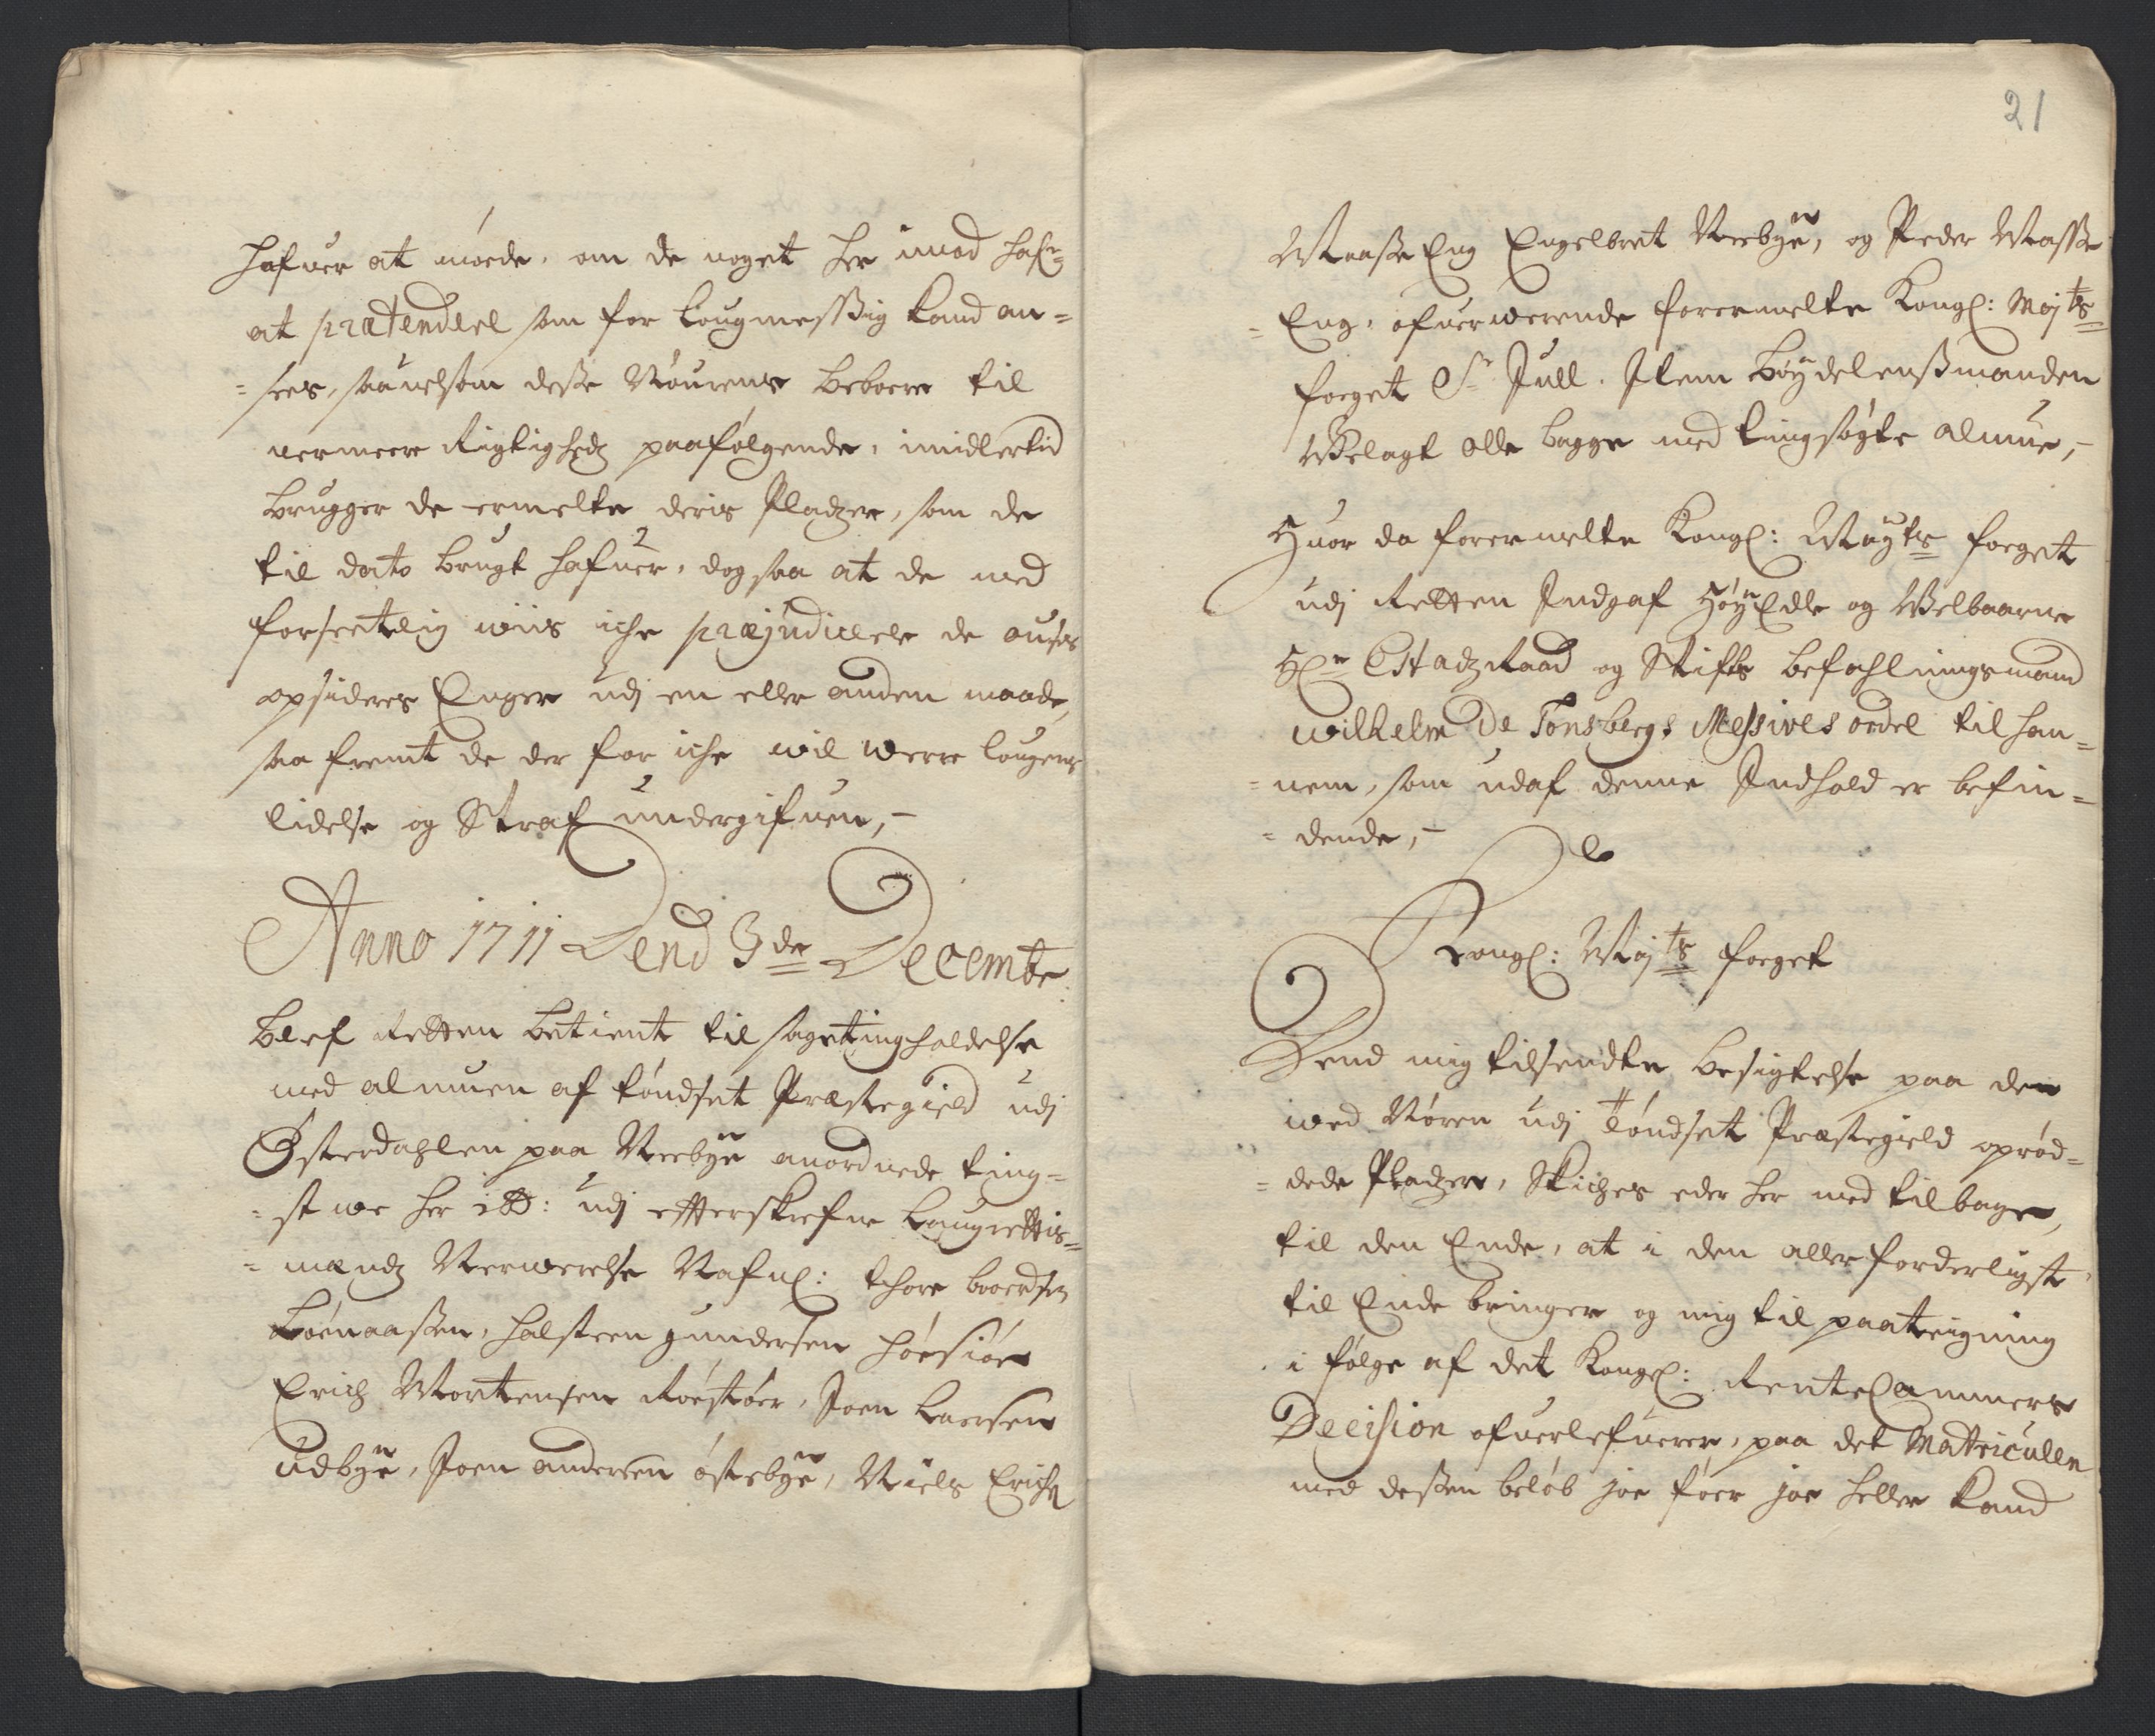 hafuer at møede, om de noget her imod hafr
at prætendere som for Lougmessig kand an=
=sees, saauelsom desse Nourens beboere til
nermere Rigtighedz paafølgende, imidlertid
brugger de ermelte deris Pladzer, som de
til dato brugt hafuer, dog saa at de med
forsetelig wiis iche præjudicere de
opsideres Enger udj en eller anden maade,
saa fremt de der for iche wil werre lougens
lidelse og Straf undergifuen,-
Anno 1711 Dend 3de Decembr
blef Retten betient til sagetingholdelse
med almuen af tøndset Præstegield udj
Østerdahlen paa Neebye anordnede ting=
=stwe her : udj efterskrefne Laugrettis=
=mendz Nerwerelse Nafnl: thore
halsteen gundersen
Erich Mortensen Joen Larsen
udbye, Joen andersen østebye, Niels Erichs
21
Maasse Eng Engelbret Neebye, og Peder Maasse
=Eng, ofuerwerende forermelte Kongl: Mayts
foeget Sr Jull. Item bøydelenssmanden
Welagt Olle bagge med tingsøgte almue,-
Huor da forermelte Kongl: Mayts foeget
udj Retten Indgaf HøyEdle og Welbaarne
Hr Etadz Raad og Stifts befahlningsmand
wilhelm De Tonsbergs Messives ordre til han=
=nem, som udaf denne Indhold er befin=
=dende,-
Kongl: Mayts foeget
Dend mig tilsendte besigtelse paa de
wed Nøren udj Tøndset Præstegield oprød=
=dede Pladzer, Skiches eder her med tilbage,
til den Ende, at i den aller forderligste
til Ende bringer og mig til paateigning
i følge af det Kongl: RenteCammers
Decision ofuerlefuerer, paa det Matriculen
med dessen beløb joe føer joe heller kand